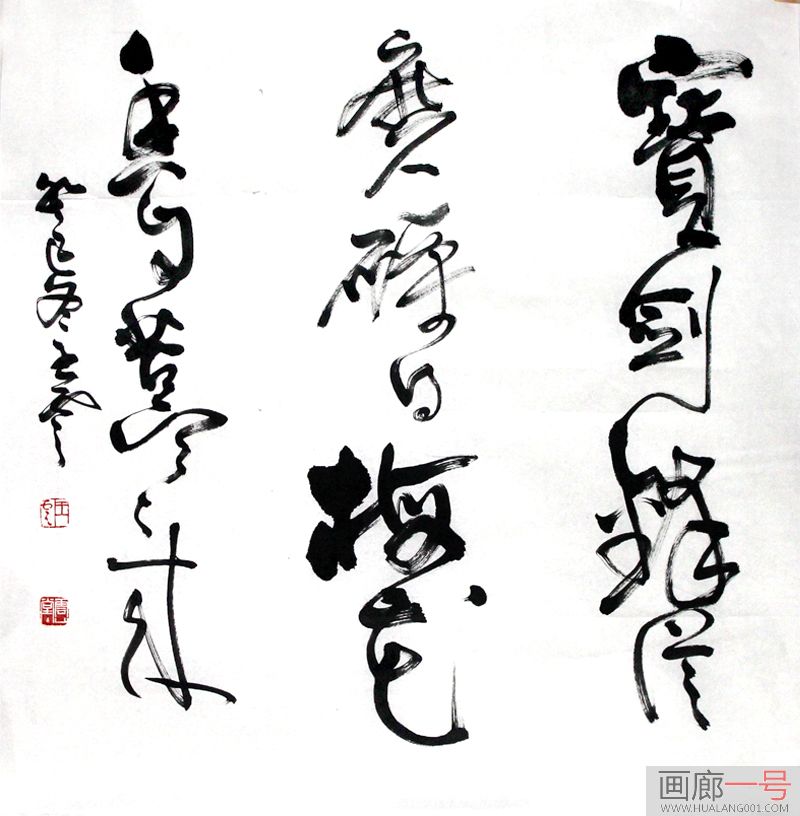 寶劍鋒從
磨礪出梅花
香自苦寒來
癸巳冬王雲
画廊一号
WWW.HUALANG001.COM